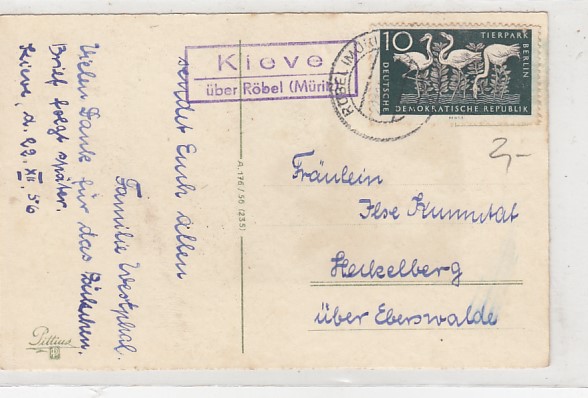 sendet Euch allen
Familie Westphal.
Vielen Dank für das Bildchen.
Brief folgt später.
Kieve, d. 29. XII. 56
Pittius
A 176/56 (235)
Kieve
über Röbel (Müritz)
RÖBEL (MÜRITZ)
10
TIERPARK BERLIN
DEUTSCHE
DEMOKRATISCHE REPUBLIK
2,-
Fräulein
Ilse Kummutat
Heckelberg
über Eberswalde